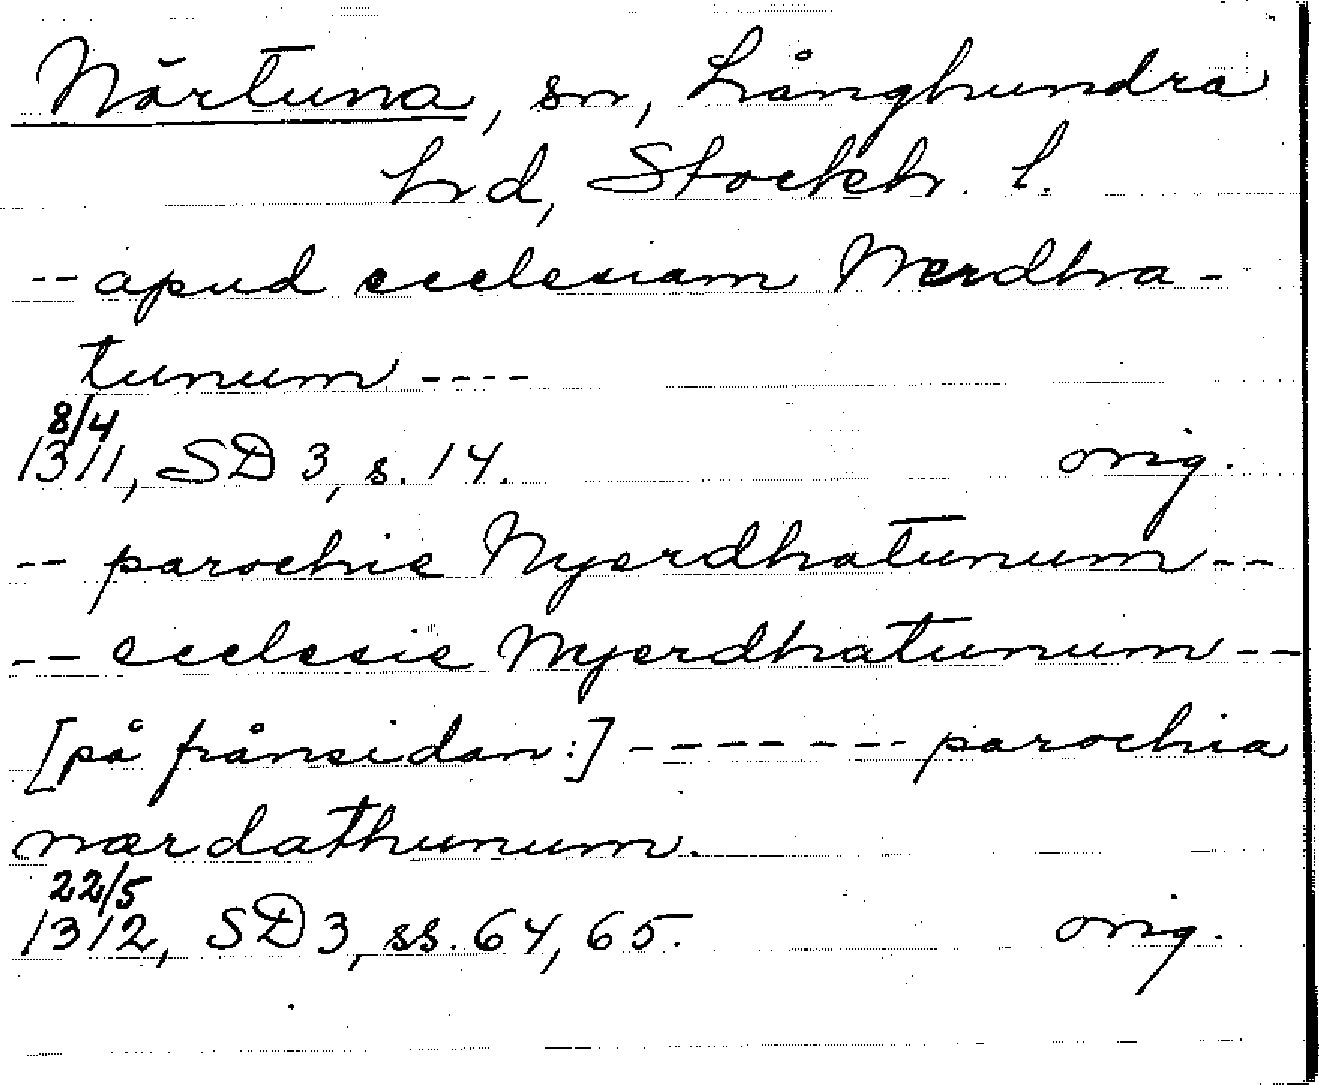 Närtuna, sn, Långhundra
hd, Stockh. l.
-- apud ecclesiam Nerdha-
tunum ----
8/4
1311, SD 3, s. 14. orig.
-- parochie Nyerdhatunum --
-- ecclesie Nyerdhatunum --
[på frånsidan:] ------- parochia
nærdathunum.
22/5
1312, SD 3, ss. 64, 65. orig.